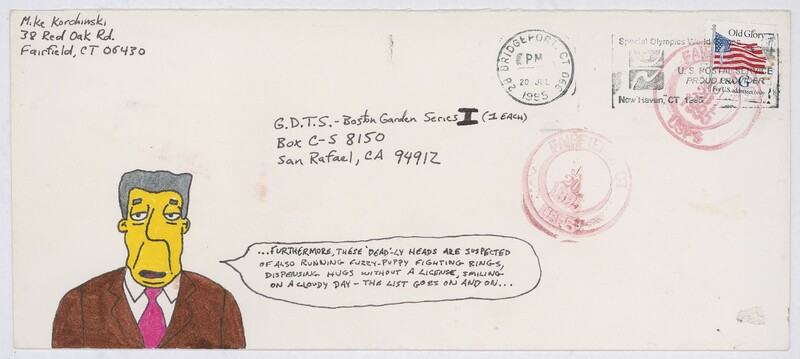 Mike Korchinski
38 Red Oak Rd.
Fairfield, CT 06430
BRIDGEPORT, CT 066
PM
20 JUL
1995
Special Olympics World
U.S. POSTAL SERVICE
PROUD PROVIDER
New Haven, CT, 1995
Old Glory
G
For U.S. addresses only
USPS
G.D.T.S.- Boston Garden Series I (1 EACH)
Box C-S 8150
San Rafael, CA 94912
...FURTHERMORE, THESE 'DEAD'-LY HEADS ARE SUSPECTED
OF ALSO RUNNING FUZZY-PUPPY FIGHTING RINGS,
DISPENSING HUGS WITHOUT A LICENSE, SMILING
ON A CLOUDY DAY - THE LIST GOES ON AND ON...